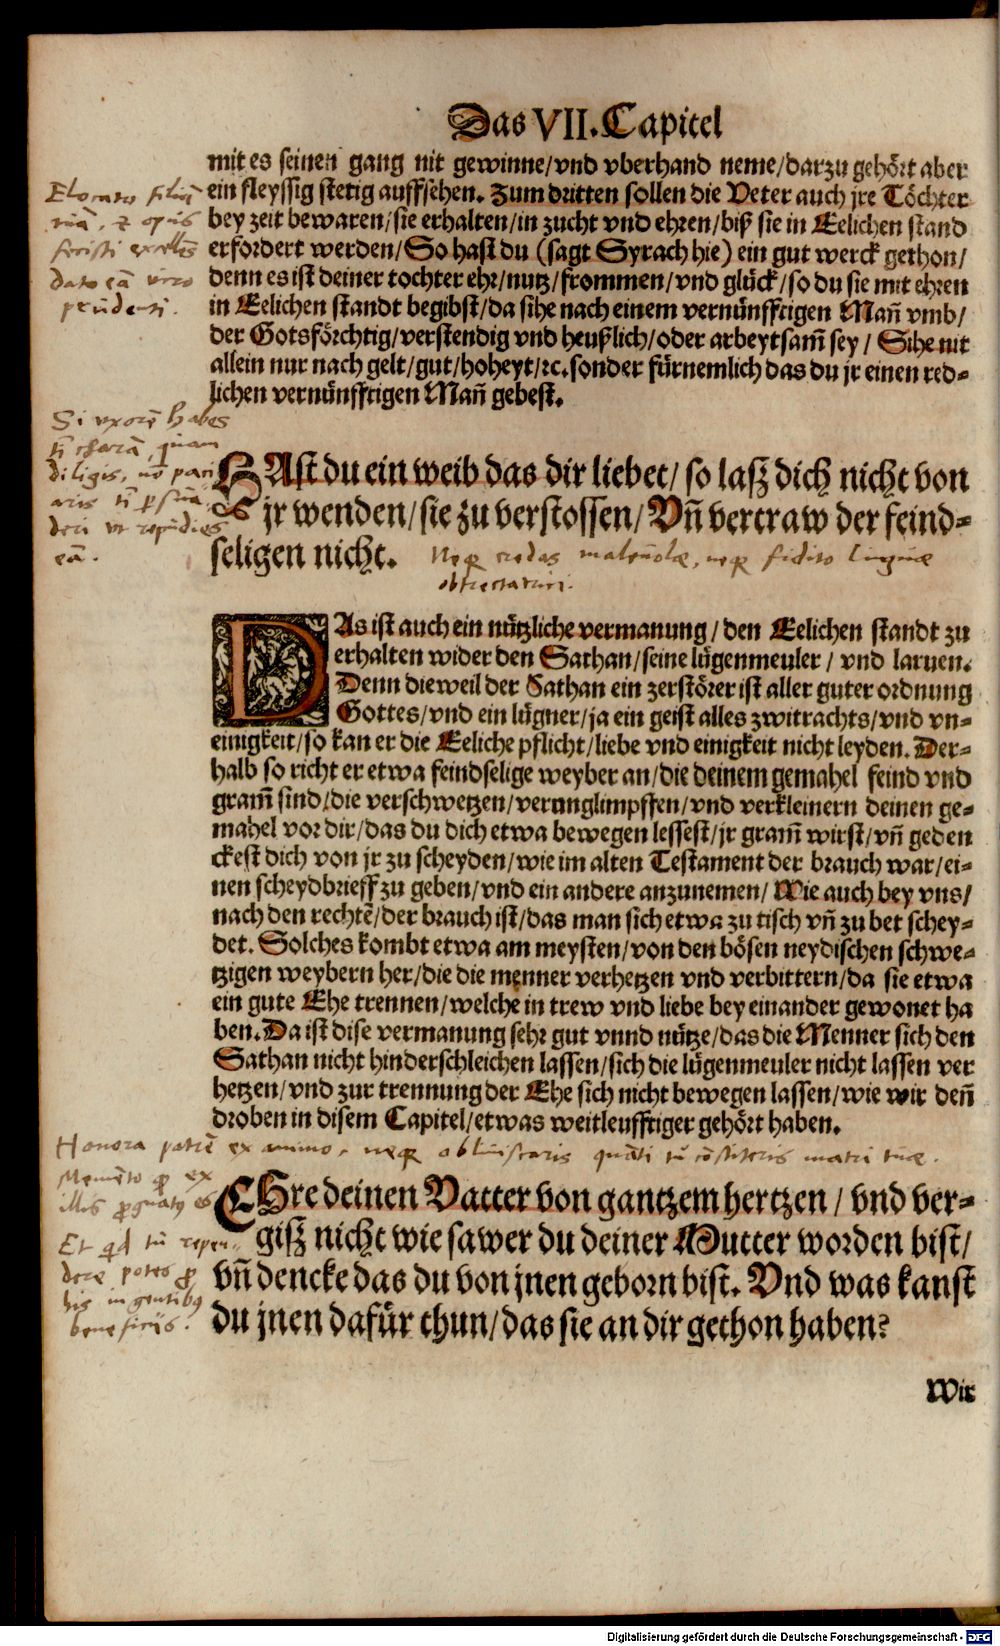 Das VII. Capitel
mit es seinen gang nit gewinne/vnd vberhand neme/darzu gehört aber
ein fleyssig stetig auffsehen. Zum dritten sollen die Veter auch jre Töchter
bey zeit bewaren/sie erhalten/in zucht vnd ehren/biß sie in Eelichen stand
erfordert werden/So hast du (sagt Syrach hie) ein gut werck gethon/
denn es ist deiner tochter ehr/nutz/frommen/vnd glück/so du sie mit ehren
in Eelichen standt begibst/da sihe nach einem vernünfftigen Mañ vmb/
der Gotsförchtig/verstendig vnd heußlich/oder arbeytsam̃ sey/ Sihe nit
allein nur nach gelt/gut/hoheyt/ꝛc. sonder fürnemlich das du jr einen red-
lichen vernünfftigen Mañ gebest.
Elocato filiã
tuã, & opus
fecisti excellẽs
dato eã viro
prudenti.
HAst du ein weib das dir liebet/ so lasz dich nicht von
jr wenden/sie zu verstossen/Vñ vertraw der feind-
seligen nicht.
Si vxorẽ habes
charã, quam
diligis, nõ pati
aris
deri vt repudies
eã.
Neque credas maleuolae, neque fidito linguae
obtrectatrici.
DAs ist auch ein nützliche vermanung/ den Eelichen standt zu
erhalten wider den Sathan/seine lügenmeuler/ vnd laruen.
Denn dieweil der Sathan ein zerstörer ist aller guter ordnung
Gottes/vnd ein lügner/ja ein geist alles zwitrachts/vnd vn-
einigkeit/so kan er die Eeliche pflicht/liebe vnd einigkeit nicht leyden. Der-
halb so richt er etwa feindselige weyber an/die deinem gemahel feind vnd
gram̃ sind/die verschwetzen/verunglimpffen/vnd verkleinern deinen ge-
mahel vor dir/das du dich etwa bewegen lessest/jr gram̃ wirst/vñ geden
ckest dich von jr zu scheyden/wie im alten Testament der brauch war/ei-
nen scheydbrieff zu geben/vnd ein andere anzunemen/ Wie auch bey vns/
nach den rechtẽ/der brauch ist/das man sich etwa zu tisch vñ zu bet schey-
det. Solches kombt etwa am meysten/von den bösen neydischen schwe-
tzigen weybern her/die die menner verhetzen vnd verbittern/da sie etwa
ein gute Ehe trennen/welche in trew vnd liebe bey einander gewonet ha
ben. Da ist dise vermanung sehr gut vnnd nütze/das die Menner sich den
Sathan nicht hinderschleichen lassen/sich die lügenmeuler nicht lassen ver
hetzen/vnd zur trennung der Ehe sich nicht bewegen lassen/wie wir deñ
droben in disem Capitel/etwas weitleufftiger gehört haben.
Honora patrẽ ex animo, neque obliuiscaris quãti tu cõstiteris matri tuae.
Memẽto ex
illis ꝓgnatus es
Et quid tu repen-
dere potes pro
his ingentibus
beneficijs.
EHre deinen Vatter von gantzem hertzen/ vnd ver-
gisz nicht wie sawer du deiner Mutter worden bist/
vñ dencke das du von jnen geborn bist. Vnd was kanst
du jnen dafür thun/das sie an dir gethon haben?
Wir
Digitalisierung gefördert durch die Deutsche Forschungsgemeinschaft - DFG